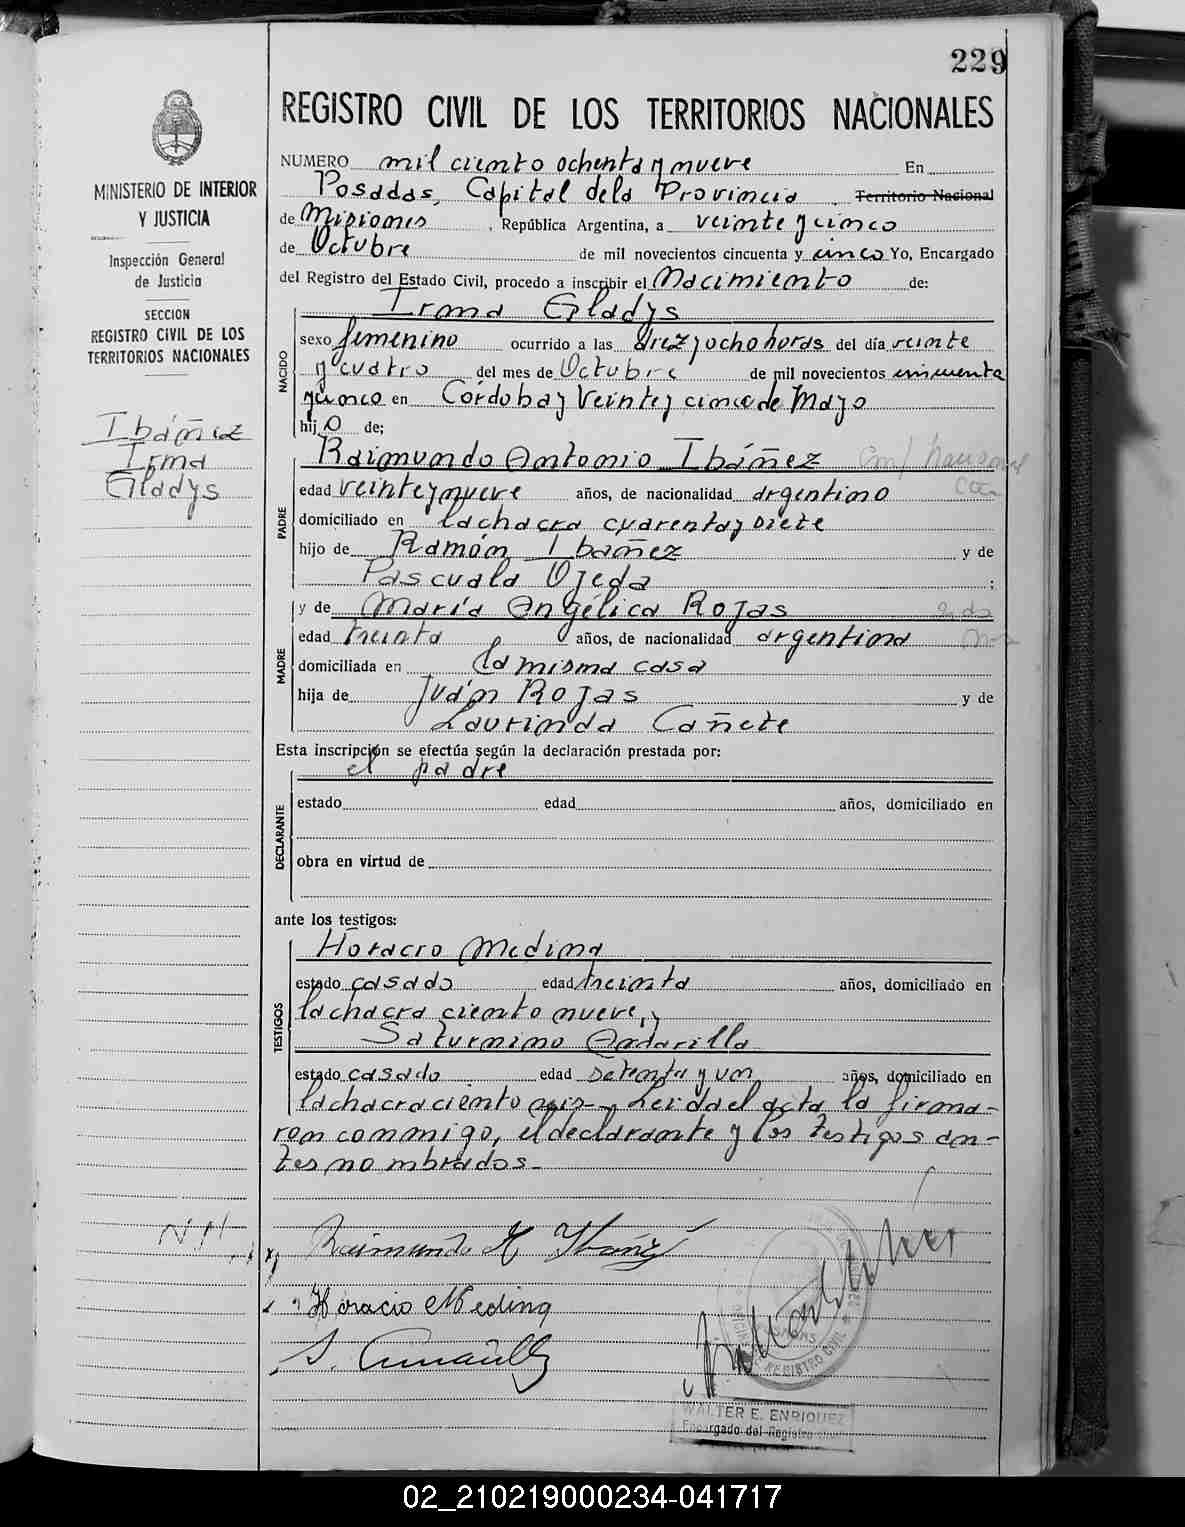 229
REGISTRO CIVIL DE LOS TERRITORIOS NACIONALES
MINISTERIO DE INTERIOR
Y JUSTICIA
Inspección General
de Justicia
SECCION
REGISTRO CIVIL DE LOS
TERRITORIOS NACIONALES
Ibáñez
Irma
Gladys
NUMERO mil ciento ochenta y nueve En
Posadas, Capital dela Provincia . Territorio Nacional
de Misiones , República Argentina, a veinte y cinco
de Octubre de mil novecientos cincuenta y cinco Yo, Encargado
del Registro del Estado Civil, procedo a inscribir el Nacimiento de:
Irma Gladys
NACIDO
sexo femenino ocurrido a las diez y ocho horas del día veinte
y cuatro del mes de Octubre de mil novecientos cincuenta
y cinco en Córdoba y Veinte y cinco de Mayo
hij a de;
Raimundo Antonio Ibáñez
PADRE
edad veinte y nueve años, de nacionalidad argentino
domiciliado en la chacra cuarenta y siete
hijo de Ramón Ibáñez y de
Pascuala Ojeda ;
y de María Angélica Rojas
MADRE
edad treinta años, de nacionalidad argentina
domiciliada en la misma casa
hija de Juán Rojas y de
Laurinda Cañete
Esta inscripción se efectúa según la declaración prestada por:
el padre
DECLARANTE
estado edad años, domiciliado en
obra en virtud de
ante los testigos:
Horacio Medina
TESTIGOS
estado casado edad treinta años, domiciliado en
la chacra ciento nueve, y
Saturnino
estado casado edad setenta y un años, domiciliado en
la chacra ciento Leida el acta la firma-
ron conmigo, el declarante y los testigos an-
tes nombrados.
Raimundo A Ybañez
Horacio Medina
OFICINA DE REGISTRO CIVIL
POSADAS
WALTER E. ENRIQUEZ
Encargado del Registro Civil
02_210219000234-041717